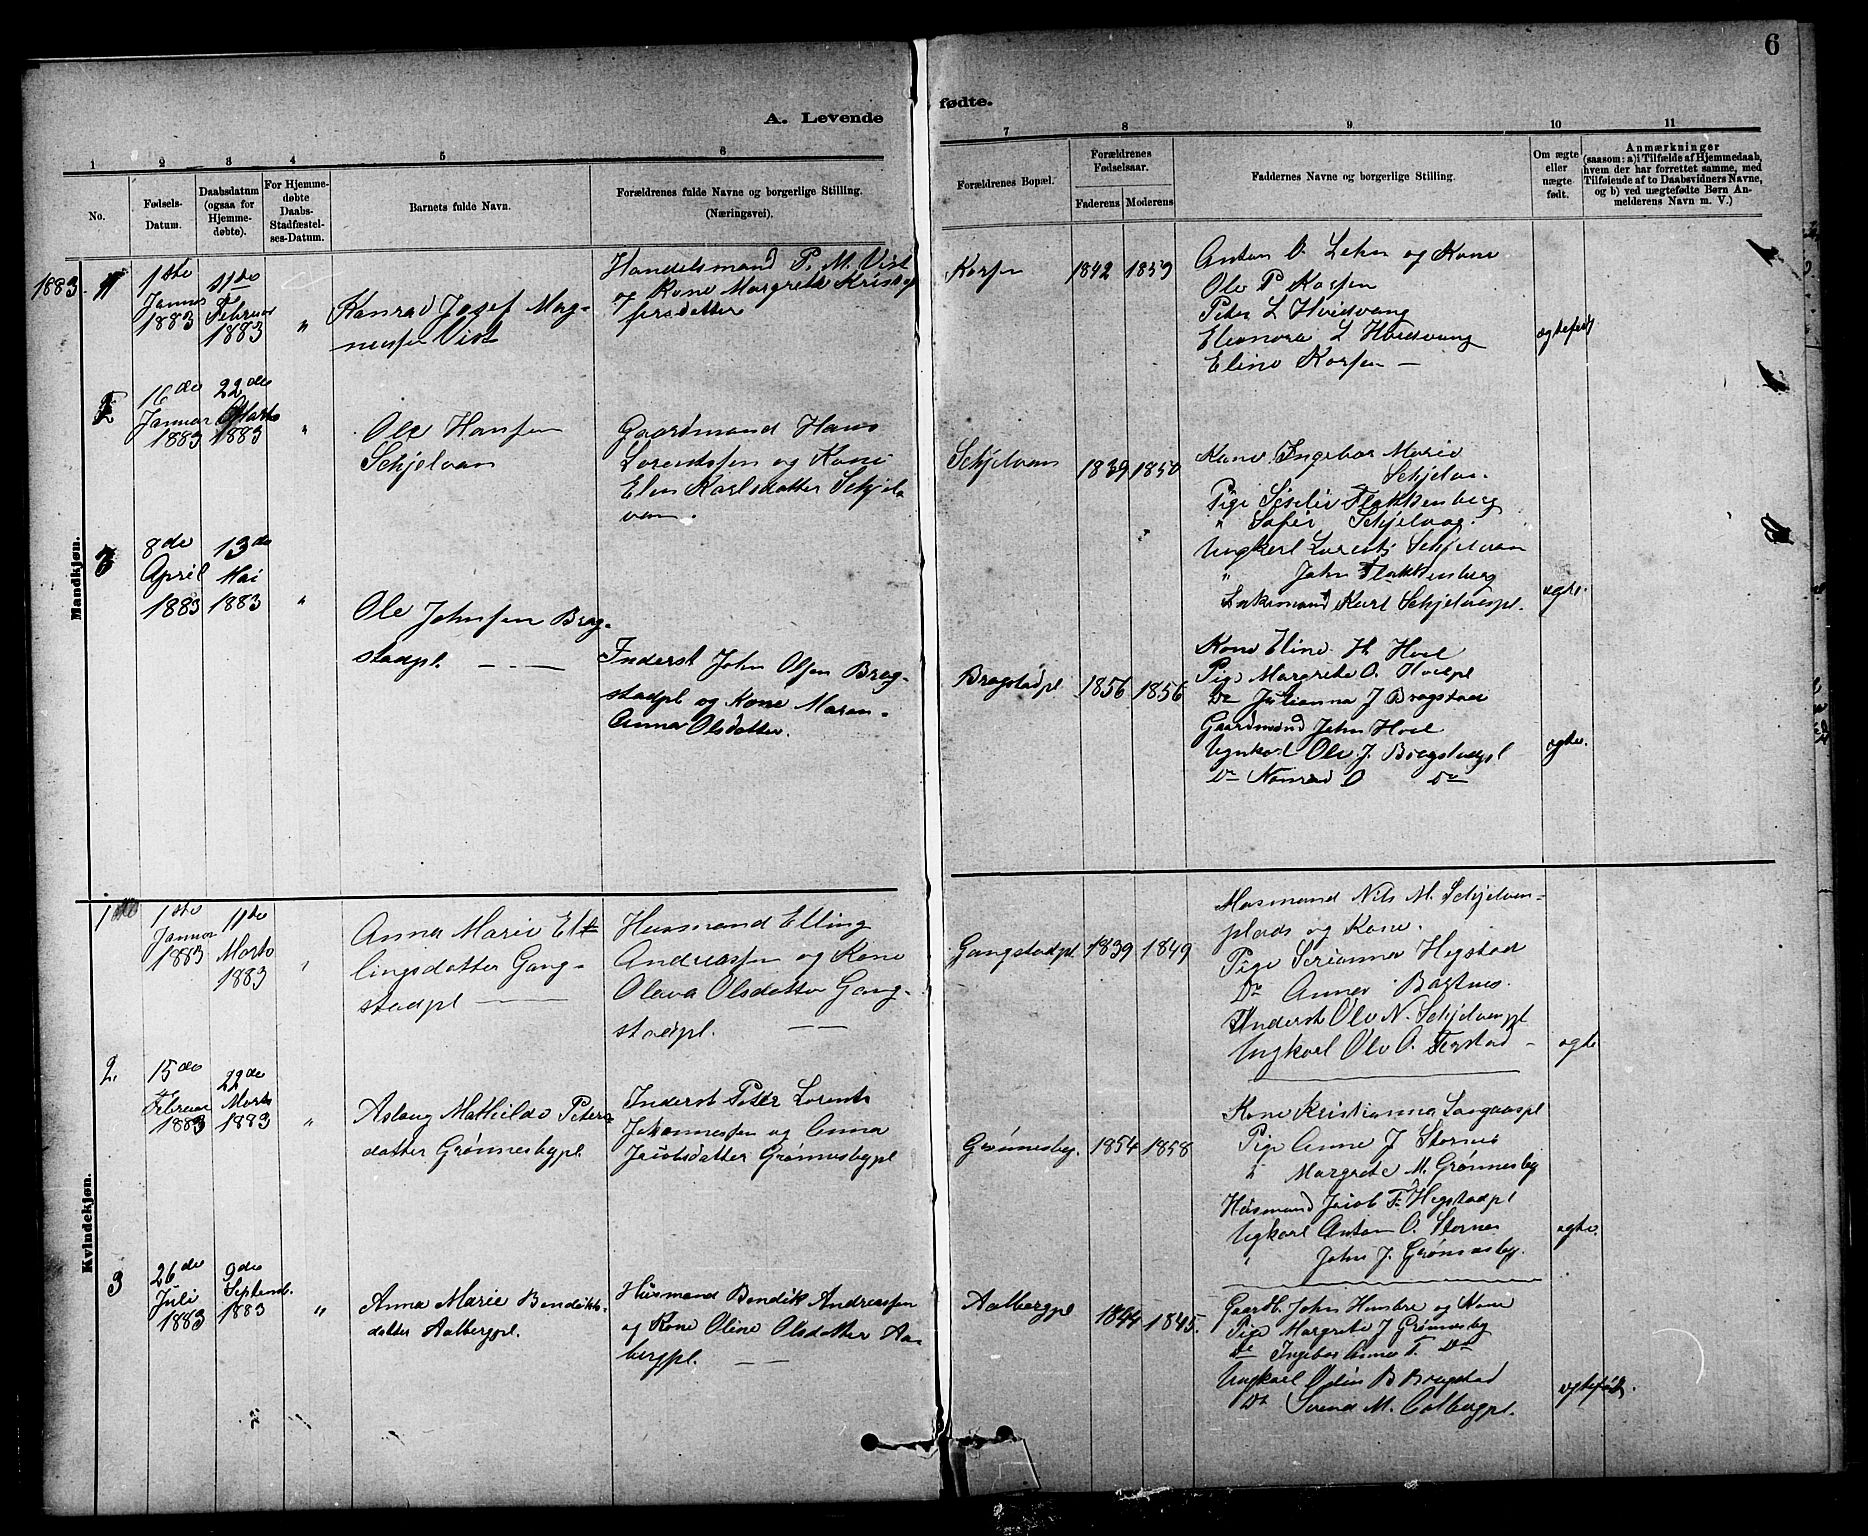 6
A. Levende
fødte.
1
2
3
4
5
6
7
8
9
10
11
No.
Fødsels-
Datum.
Daabsdatum
(ogsaa for
Hjemme-
døbte).
For Hjemme-
døbte
Daabs-
Stadfæstel-
ses-Datum.
Barnets fulde Navn.
Forældrenes fulde Navne og borgerlige Stilling.
(Næringsvei).
Forældrenes Bopæl.
Forældrenes
Fødselsaar.
Faderens
Moderens
Faddernes Navne og borgerlige Stilling.
Om ægte
eller
uægte
født.
Anmærkninger
(saasom: a) i Tilfælde af Hjemmedaab,
hvem der har forrettet samme, med
Tilføiende af to Daabsvidners Navne,
og b) ved uægtefødte Børn An-
melderens Navn m. V.)
Mandkjøn.
1883
1
1ste
Januar
1883
11te
Februar
1883
"
Konrad Josef Mag-
nussen Vist
Handelsmand P. M. Vist
og Kone Margrete Kristof
fersdatter
Korsen
1842
1859
Anton O. Lehn og Kone
Ole P Korsen
Peter L Hvidvang
Eleonora L Hvidvang
Eline Korsen —
ægtefød
2
16de
Januar
1883
22de
Marts
1883
"
Ole Hansen
Schjelvan
Gaardmand Hans
Lorentssen og Kone
Elen Karlsdatter Schjel-
van.
Schjelvan
1839
1850
Kone Ingebor Marie
Schjelva.
Pige Siselie Flakkenberg
" Sofie Schjelvag.
Ungkarl Lorents Schjelvaan
" John Flakkenberg
Karl Schjelvaspl.
ægte.
3
8de
April
1883
13de
Mai
1883
"
Ole Johnsen Brag-
stadpl. — —
Inderst John Olsen Brag-
stadpl og Kone Maren
Anna Olsdatter.
Bragstadpl
1856
1856
Kone Eline H. Hoel
Pige Margrete O. Hoelpl
Do Julianna J Bragstad
Gaardmand John Hoel
Ungkarl Ole J. Bragstadpl
Do Konrad O Do
ægte.
Kvindekjøn.
1ste
1ste
Januar
1883
11te
Marts
1883
"
Anna Marie El-
lingsdatter Gang-
stadpl —
Husmand Elling
Andreassen og Kone
Olava Olsdatter Gang-
stadpl. — —
Gangstadpl.
1839
1849
Husmand Nils M. Schjelven-
plads og Kone.
Pige Serianna Hegstad
Do Anna Bartnes.
Inderst Ole N. Schjelvenpl
Ungkarl Ole O. Hegstad -
ægte
2.
15de
Februar
1883
22de
Marts
1883
"
Aslaug Mathilde Peters-
datter Grønnesbypl.
Inderst Peter Lorents
Johannessen og Anna
Jacobsdatter Grønnesbypl
Grønnesby.
1854
1858
Kone Kristianna
Pige Anne J Stornes
" Margrete M. Grønnesby
Husmand Jacob F. Hegstadpl
Ungkarl Anton O. Stornes
" John J. Grønnesby.
ægte.
3
26de
Juli
1883
9de
Septemb.
1883
"
Anna Marie Bendikts-
datter Aalbergpl.
Husmand Bendik Andreassen
og Kone Oline Olsdatter Aal-
bergpl. — —
Aalbergpl
1844
1845.
Gaardb. John Henbre og Kone
Pige Margrete J Grønnesby
Do Ingebor Anna T. Do
Ungkarl Odin B Bragstad
Do Svend M. Aalbergpl.
ægtefødt.